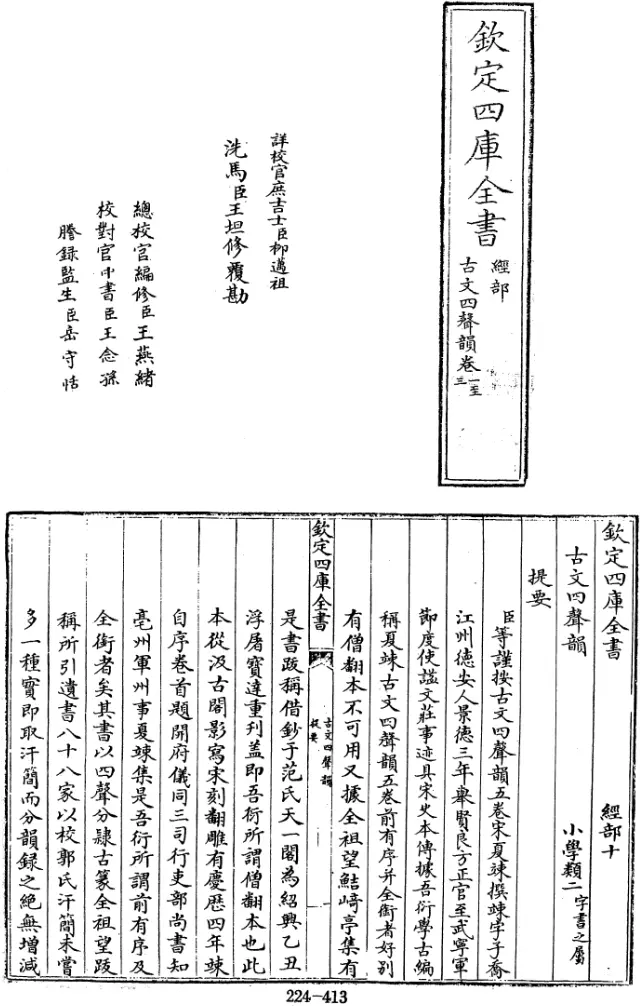 欽定四庫全書
經部
古文四聲韻卷一至三
詳校官庶吉士臣柳邁祖
洗馬臣王坦修覆勘
總校官編修臣王燕緒
校對官中書臣王念孫
謄錄監生臣岳守恬
欽定四庫全書 經部十
古文四聲韻 小學類二字書之屬
提要
臣等謹按古文四聲韻五卷宋夏竦撰竦字子喬
江州德安人景德三年舉賢良方正官至武寧軍
節度使諡文莊事迹具宋史本傳據吾衍學古編
稱夏竦古文四聲韻五卷前有序并全銜者好別
有僧翻本不可用又據全祖望鮚埼亭集有
欽定四庫全書
古文四聲韻
提要
是書跋稱借鈔于范氏天一閣為紹興乙丑
浮屠寶達重刊盖即吾衍所謂僧翻本也此
本從汲古閣影寫宋刻翻雕有慶歷四年竦
自序卷首題開府儀同三司行吏部尚書知
亳州軍州事夏竦集是吾衍所謂前有序及
全銜者矣其書以四聲分隷古篆全祖望跋
稱所引遺書八十八家以校郭氏汗簡未嘗
多一種實即取汗簡而分韻録之絶無增減
224-413